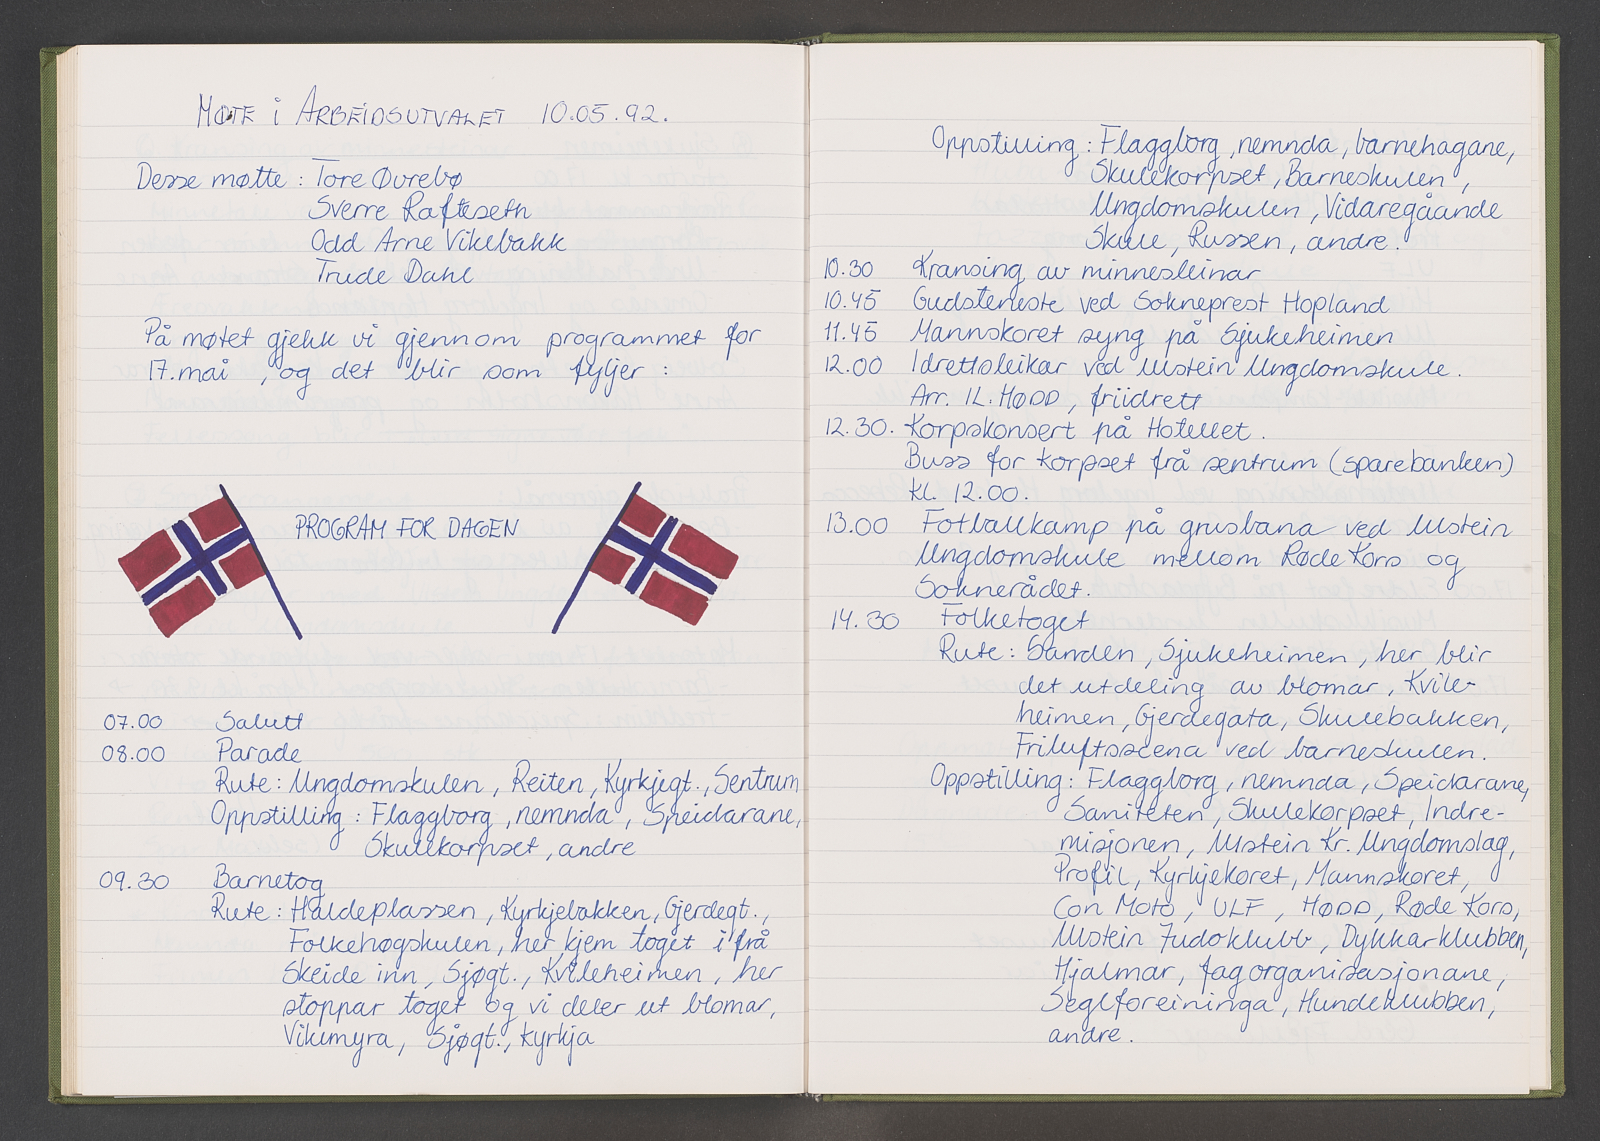 MØTE i ARBEIDSUTVALET 10.05.92.
Desse møtte : Tore Øvrebø
Sverre Rafteseth
Odd Arne Vikebakk
Trude Dahl
På møtet gjekk vi gjennom programmet for
17.mai , og det blir som fyljer :
PROGRAM FOR DAGEN
07.00 Salutt
08.00 Parade
Rute : Ungdomskulen , Reiten , Kyrkjegt., Sentrum
Oppstilling : Flaggborg , nemnda , Speidarane,
Skulekorpset , andre
09.30 Barnetog
Rute : Haldeplassen , Kyrkjebakken, Gjerdegt.,
Folkehøgskulen, her kjem toget i frå
Skeide inn , Sjøgt., Kvileheimen , her
stoppar toget og vi deler ut blomar,
Vikemyra , Sjøgt., kyrkja
Oppstilling : Flaggborg , nemnda , barnehagane,
Skulekorpset , Barneskulen ,
Ungdomskulen , Vidaregåande
Skule , Russen , andre .
10.30 Kransing av minnesteinar
10.45 Gudsteneste ved Sokneprest Hopland
11.45 Mannskoret syng på Sjukeheimen
12.00 Idrettsleikar ved Ulstein Ungdomskule .
Arr. IL. HØDD , friidrett
12.30. Korpskonsert på Hotellet .
Buss for korpset frå sentrum (sparebanken)
kl. 12.00.
13.00 Fotballkamp på grusbana ved Ulstein
Ungdomskule mellom Røde Kors og
Soknerådet.
14.30 Folketoget
Rute : Sanden , Sjukeheimen , her blir
det utdeling av blomar , Kvile-
heimen , Gjerdegata , Skulebakken,
Friluftsscena ved barneskulen .
Oppstilling : Flaggborg , nemnda , Speidarane,
Saniteten , Skulekorpset , Indre-
misjonen , Ulstein Kr. Ungdomslag,
Profil , Kyrkjekoret , Mannskoret ,
Con Moto , ULF , HØDD , Røde Kors,
Ulstein Judoklubb , Dykkarklubben,
Hjalmar , fagorganisasjonane ,
Seglforeininga , Hundeklubben ,
andre .